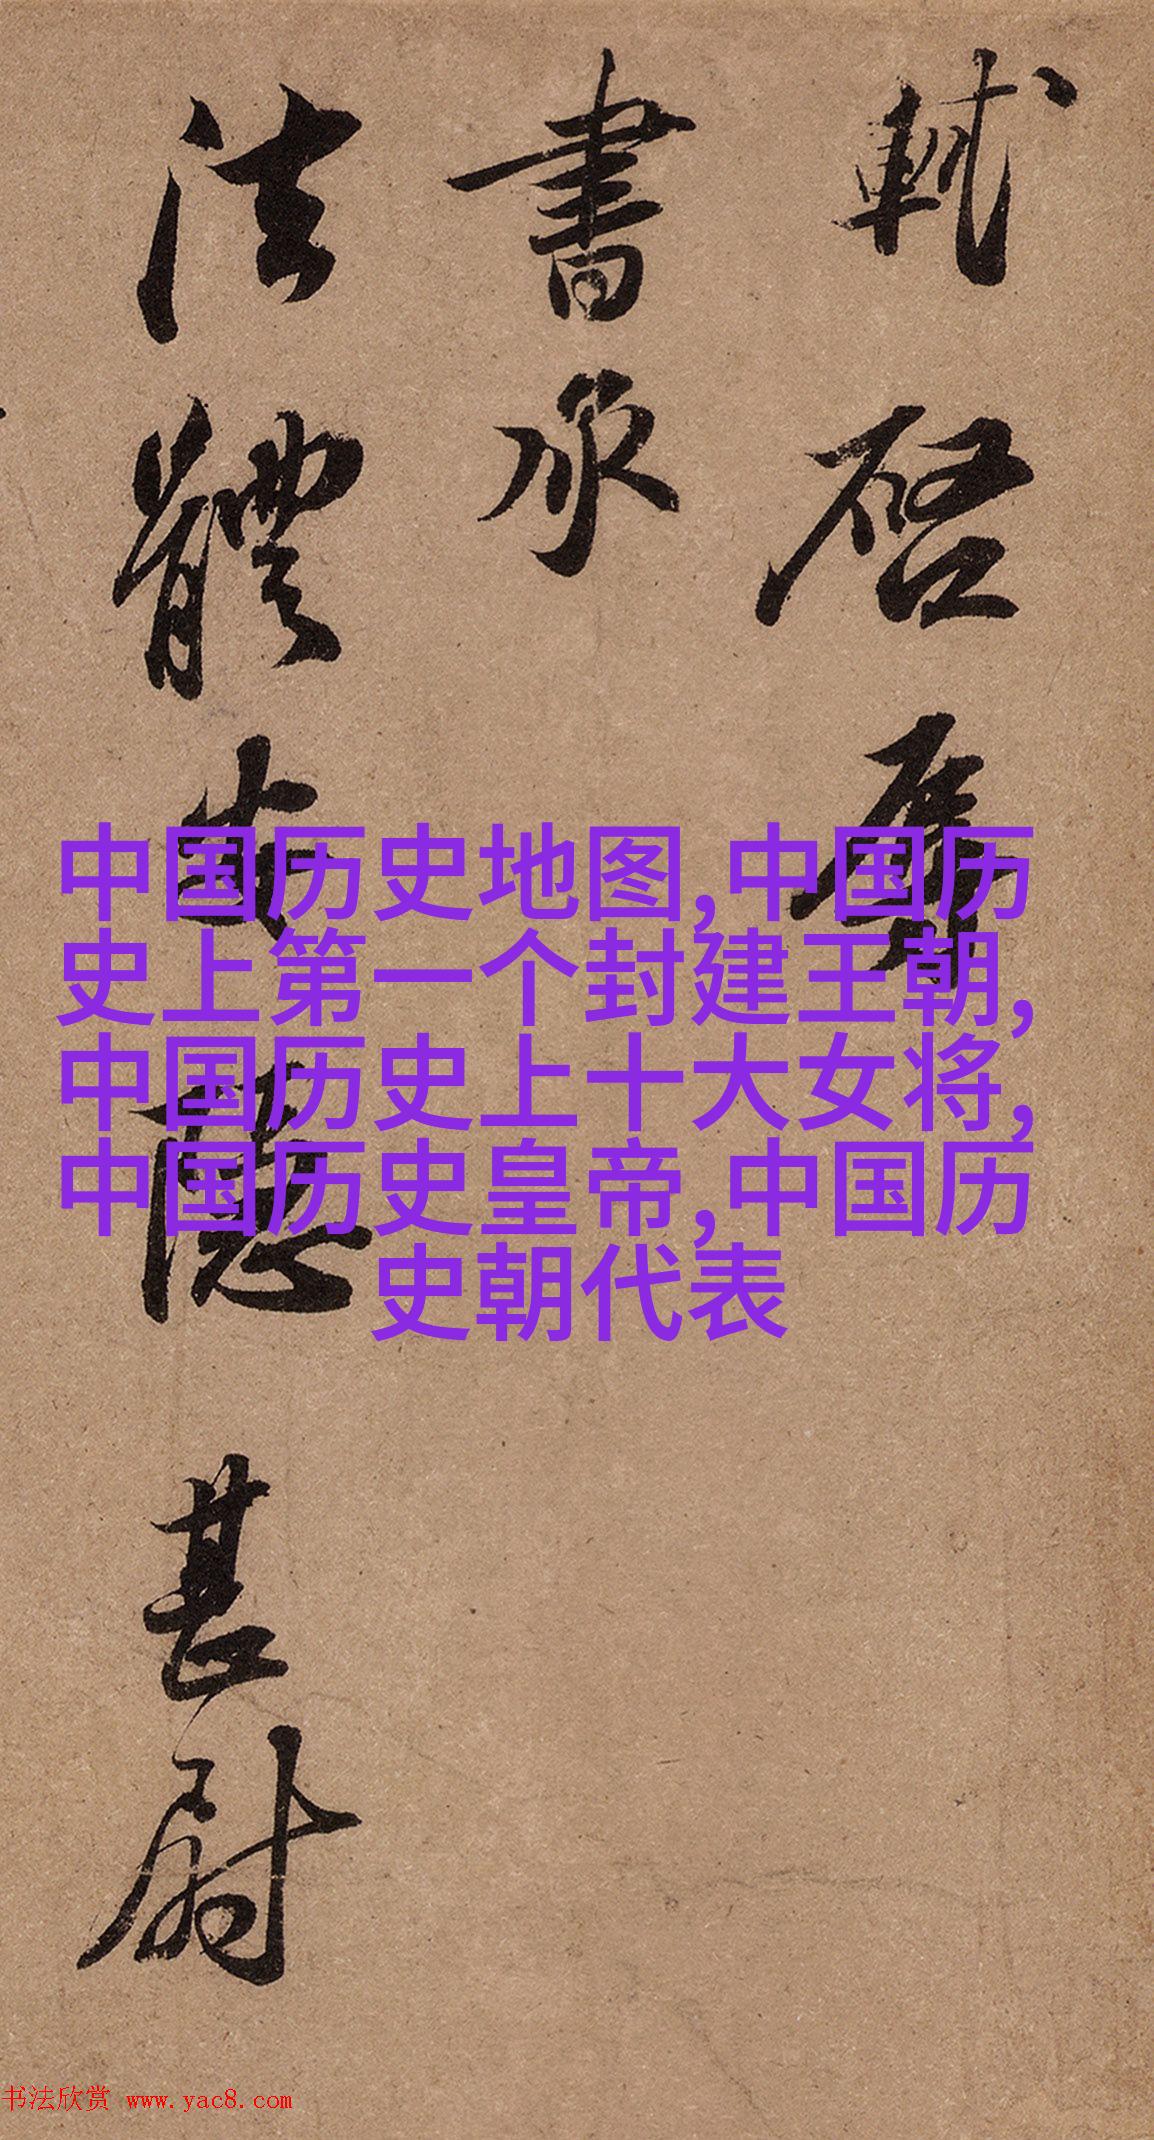 軾啓辱
書承
法體安隱甚尉
中国历史地图,中国历
史上第一个封建王朝,
中国历史上十大女将,
中国历史皇帝,中国历
史朝代表
书法欣赏 www.yac8.com